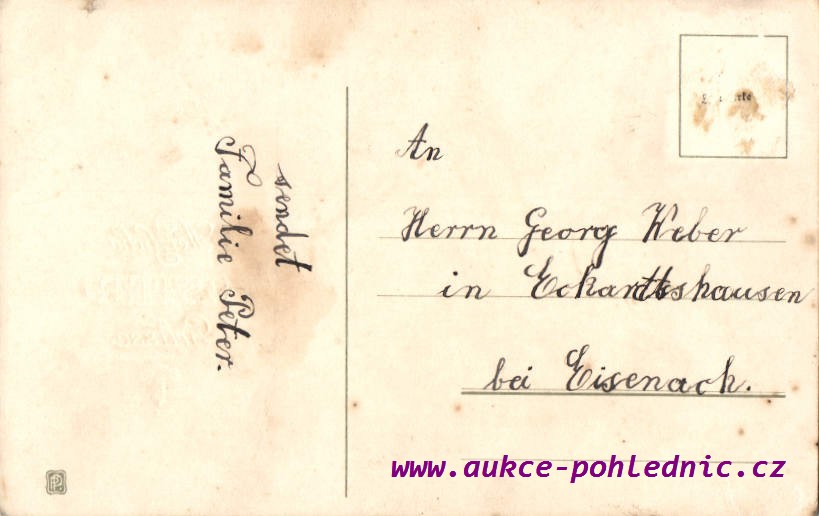 sendet
Familie Peter.
An
Herrn Georg Weber
in Eckardtshausen
bei Eisenach.
www.aukce-pohlednic.cz